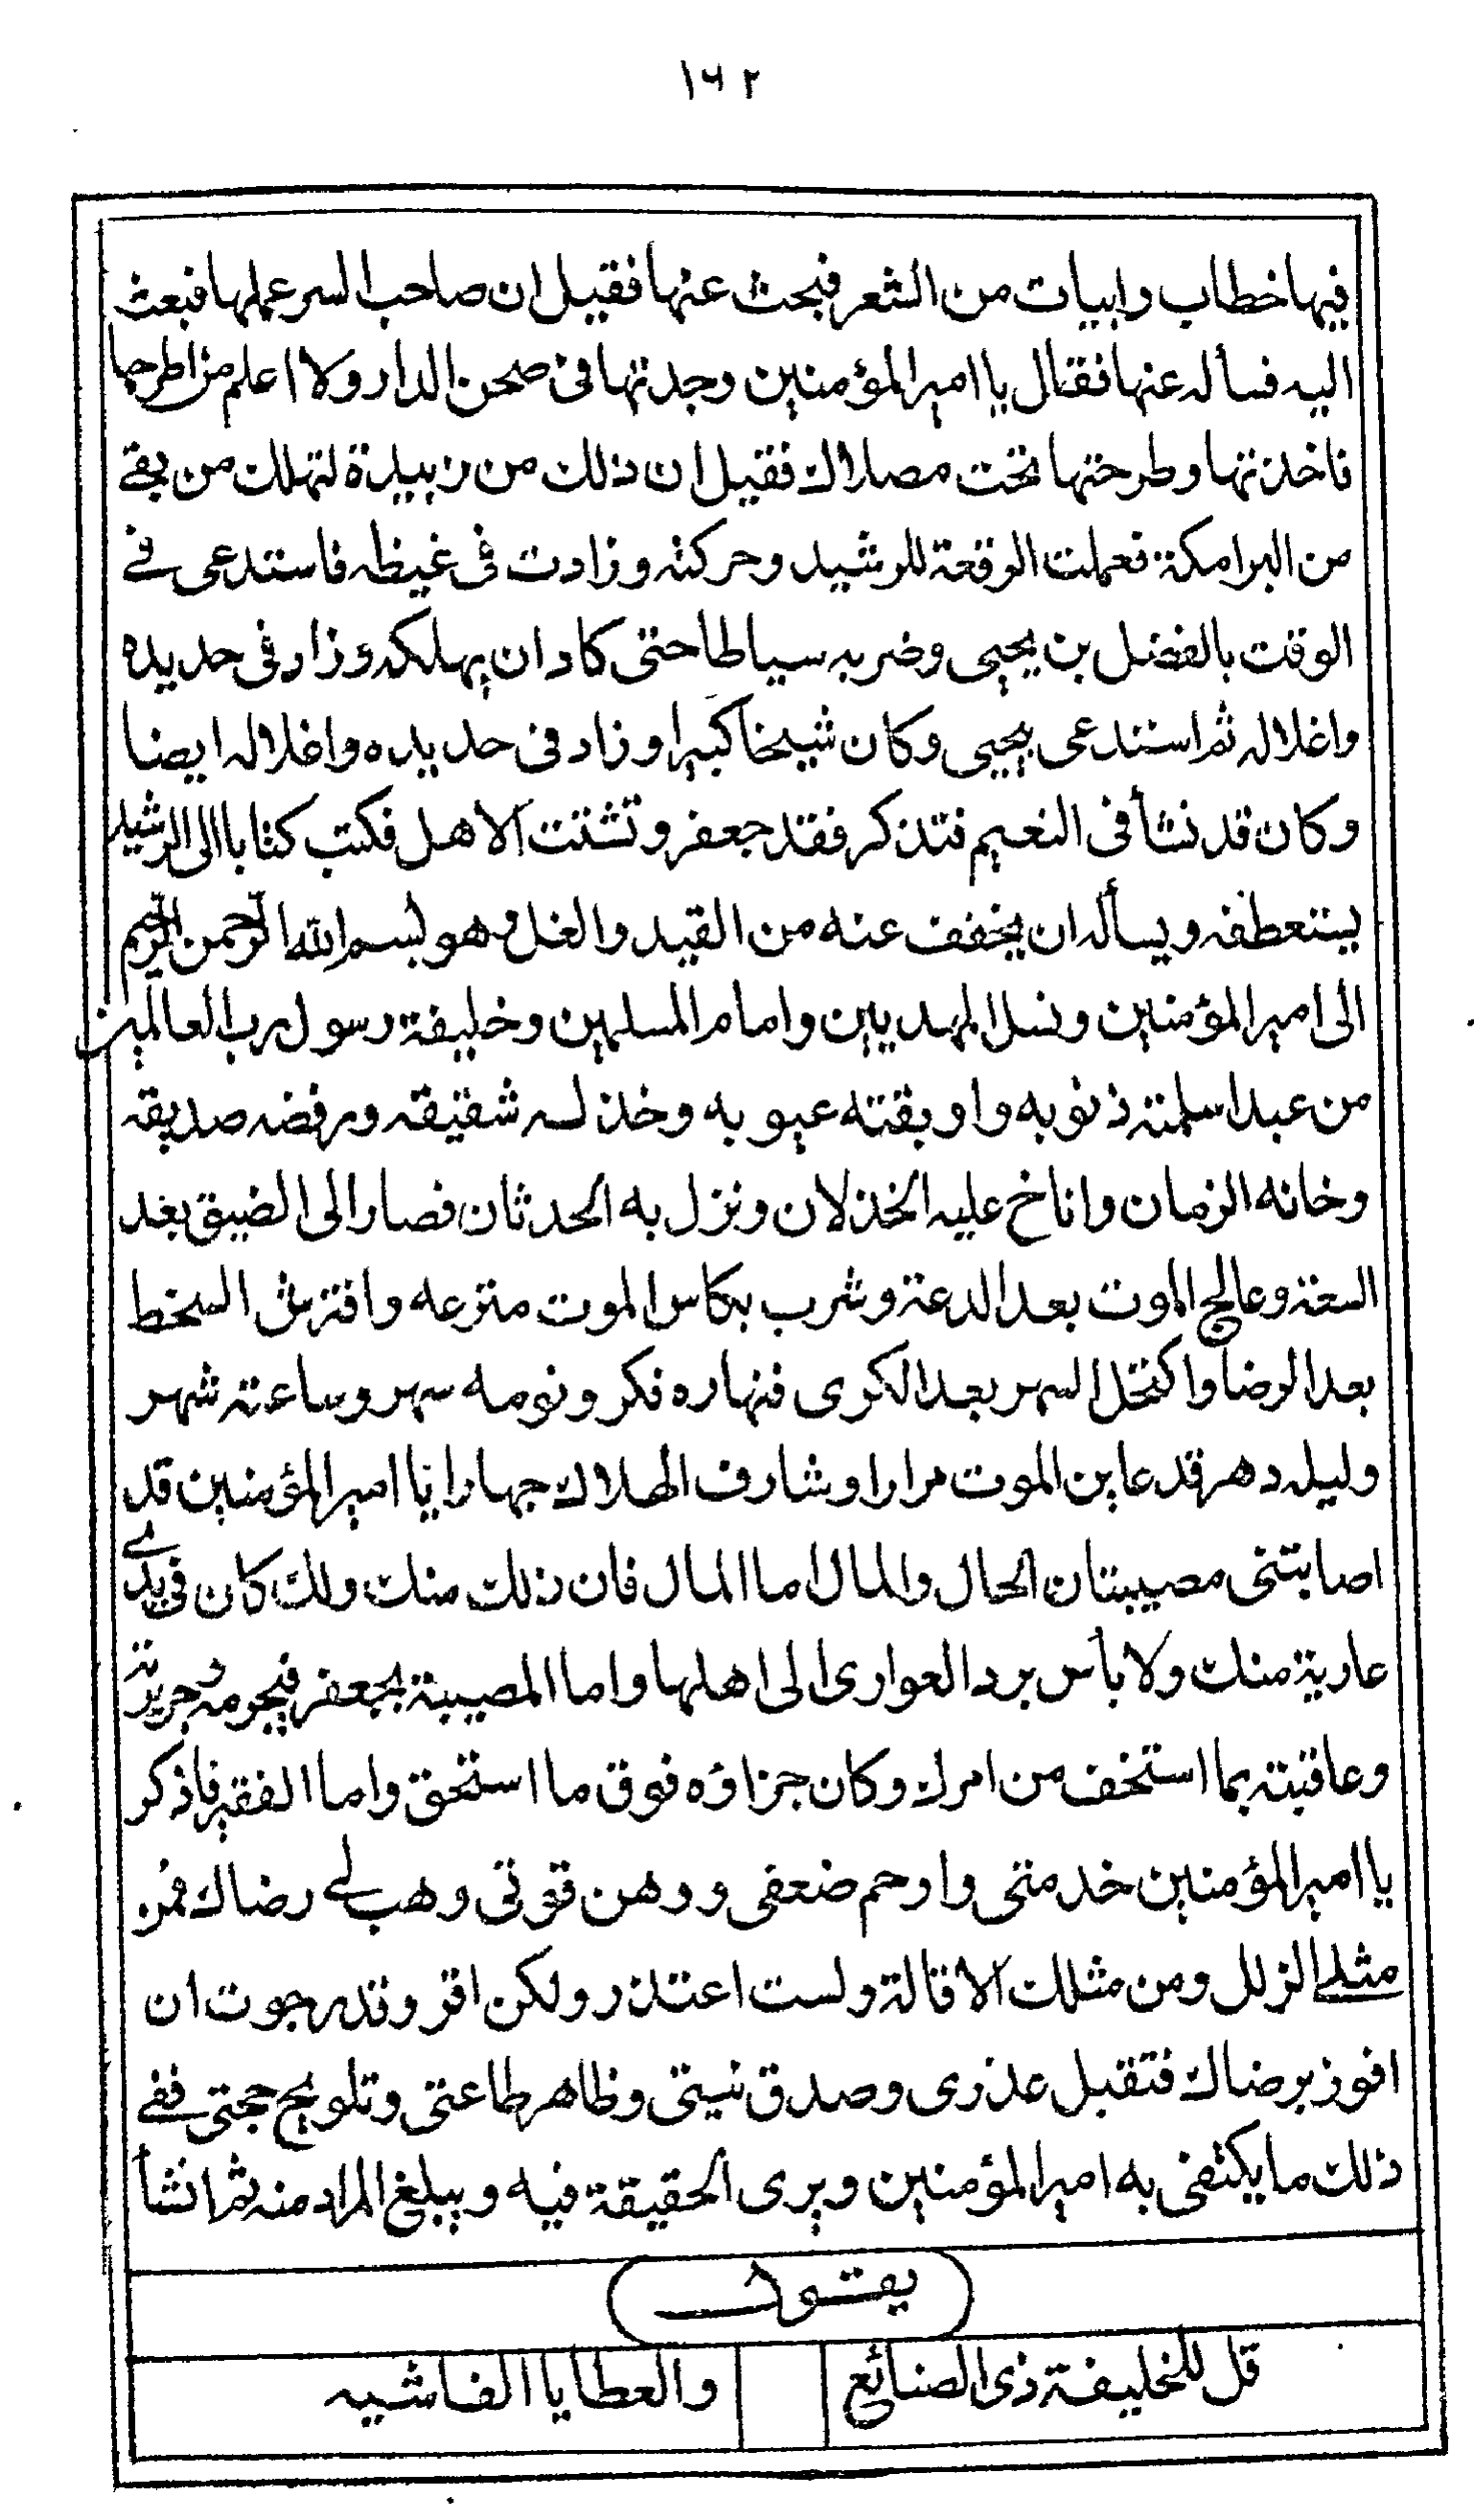 ١٦٢
فيها خطاب وابيات من الشعر فبحث عنها فقيل ان صاحب السر عملها فبعث
اليه فساله عنها فقال يا امير المؤمنين وجدتها فى صحن الدار ولا اعلم من اطرحها
فاخذتها وطرحتها تحت مصلاك فقيل ان ذلك من زبيدة لتهلك من بقے
من البرامكة فعملت الوقعة للرشيد وحركته وزادت فى غيظه فاستدعى فے
الوقت بالفضل بن يحيى وضربه سياطا حتى كاد ان يهلكه وزاد فى حديده
واغلاله ثم استدعى يحيى وكان شيخا كبيرا وزاد فى حديده واغلاله ايضا
وكان قد نشأ فى النعيم فتذكر فقد جعفر وتشتت الاهل فكتب كتابا الى الرشيد
يستعطفه ويسأله ان يخفف عنه من القيد والغل وهو بسم الله الرحمن الرحيم
الى امير المؤمنين ونسل المهديين وامام المسلمين وخليفة رسول رب العالمين
من عبد اسلمته ذنوبه واوبقته عيوبه وخذله شقيقه ورفضه صديقه
وخانه الزمان واناخ عليه الخذلان ونزل به الحدثان فصار الى الضيق بعد
السعة وعالج الموت بعد الدعة وشرب بكاس الموت منزعه وافترش السخط
بعد الرضا واكتحل السهر بعد الكرى فنهاره فكر ونومه سهر وساعته شهر
وليله دهر قد عاين الموت مرارا وشارف الهلاك جهارا يا امير المؤمنين قد
اصابتنى مصيبتان الحال والمال اما المال فان ذلك منك ولك كان فى يدے
عارية منك ولا بأس برد العوارى الى اهلها واما المصيبة بجعفر فبجرمه وجريرته
وعاقبته بما استخف من امرك وكان جزاؤه فوق ما استحق واما الفقير فاذكر
يا امير المؤمنين خدمتى وارحم ضعفى ووهن قوتى وهب لے رضاك فمن
مثلے الزلل ومن مثلك الاقالة ولست اعتذر ولكن اقر وقد رجوت ان
افوز برضاك فتقبل عذرى وصدق نيتى وظاهر طاعتى وتلويح حجتى ففے
ذلك ما يكتفى به امير المؤمنين ويرى الحقيقة فيه ويبلغ المراد منه ثم انشأ
يقول
قل للخليفة ذى الصنائع والعطايا الفاشيه